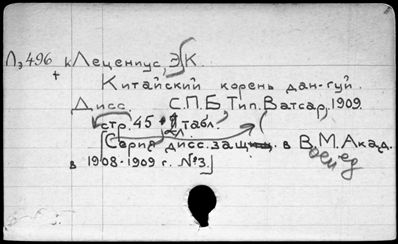 Л₂496 к Лецениус, Э.К.
Китайский корень дан-гуй.
Дисс. С.П.Б, Тип. Ватсар, 1909.
стр. 45 + 1 табл.
[Серия дисс. защ. в В.М. Акад.
в 1908-1909 г. №3.]